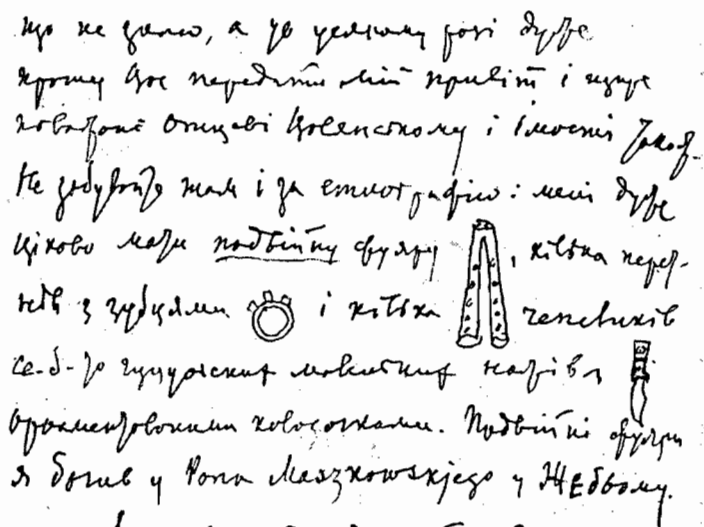 що не знаю, а ув усякому разі дуже
прошу Вас передати мій привіт і щире
поважанє Отцеві Цовенському і Імости
Не забувайте там і за етнографію: мені дуже
цікаво мати подвійну фуяру, кілька перст-
нів з зубцями і кілька чепеликів
се-б-то гуцульских маленьких ножів з
орнаментованими колосочками. Подвійні фуяри
я бачив у Pana Maszkowskjego у Жебьому.